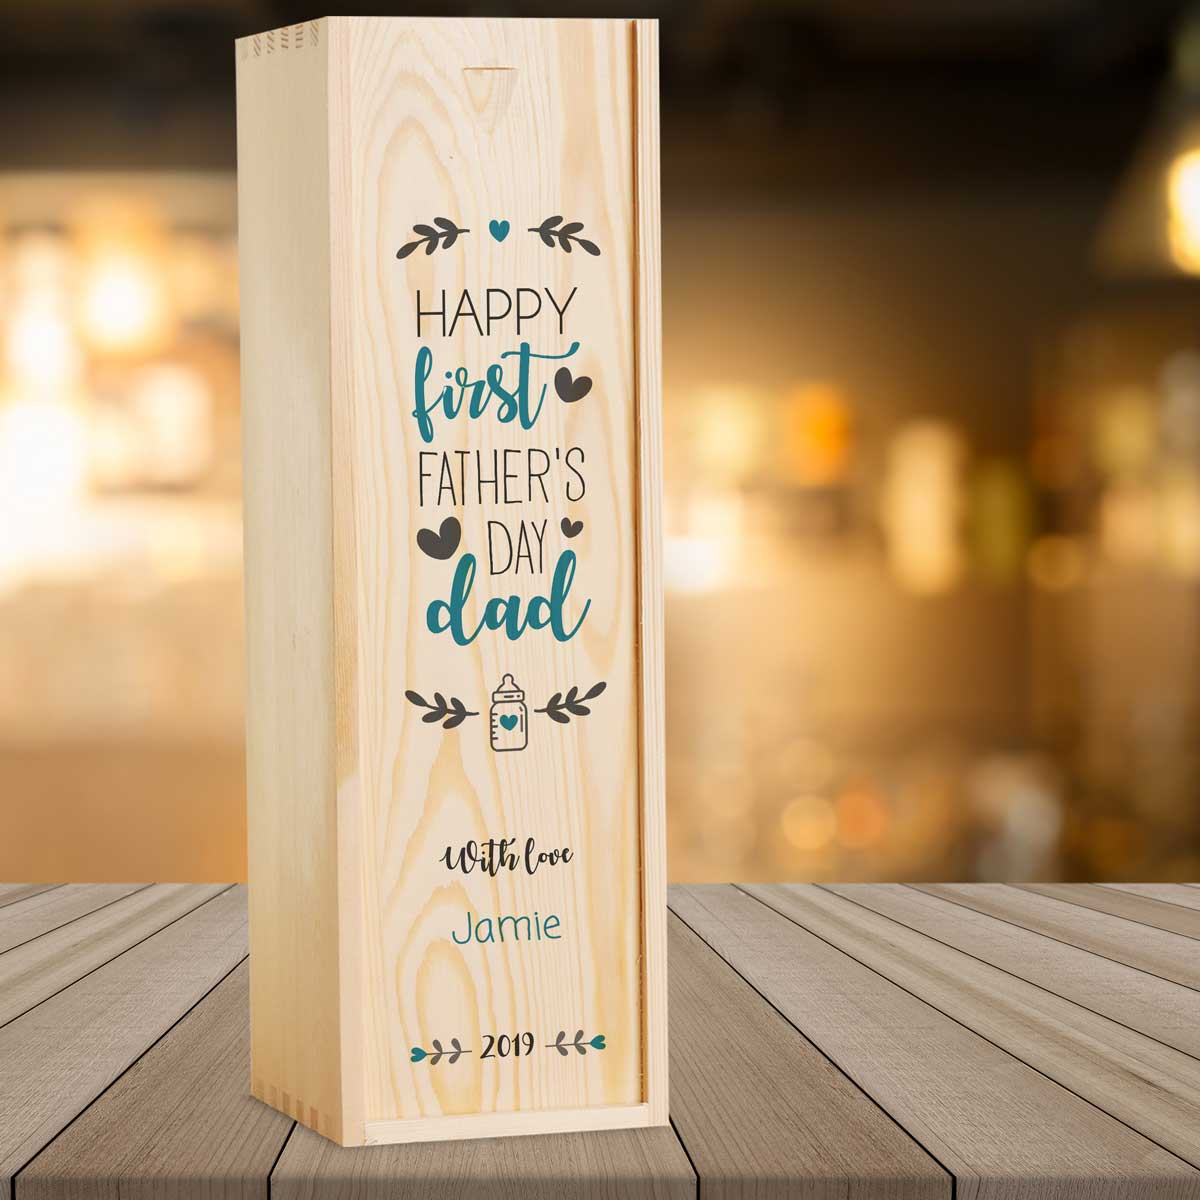 HAPPY
first
FATHER'S
DAY
dad
With love
Jamie
2019